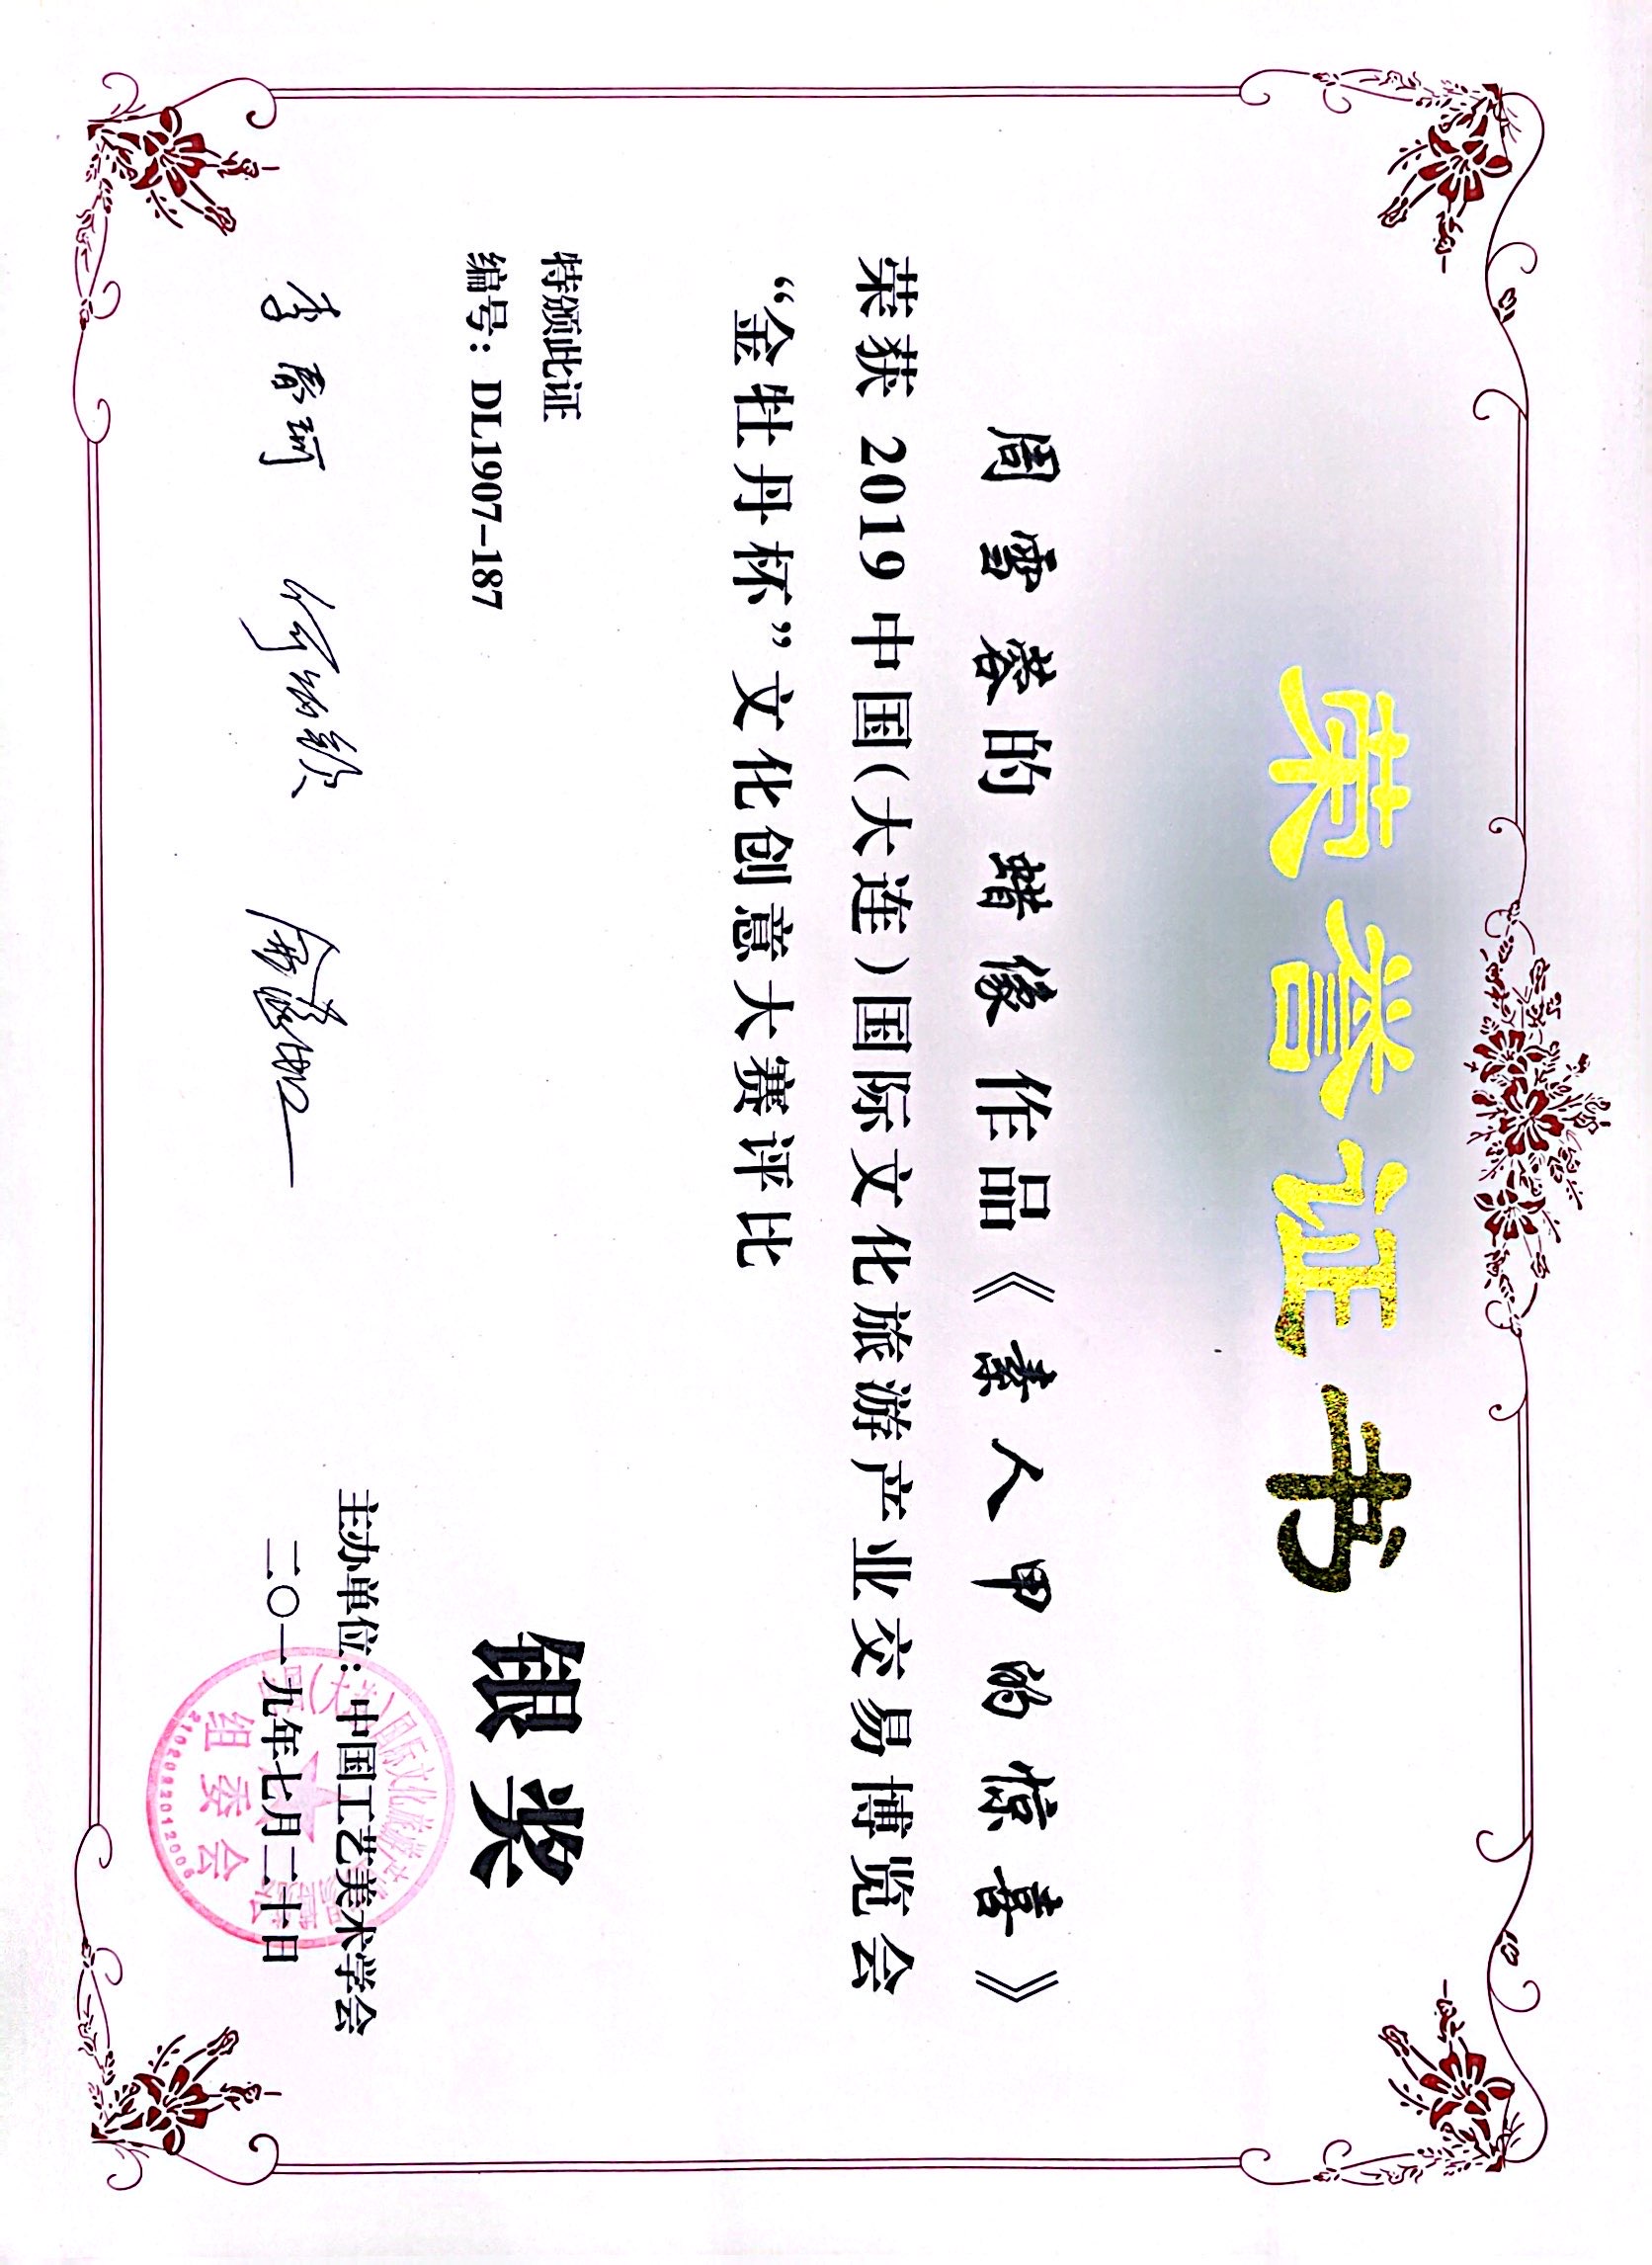 荣誉证书
周雪蓉的蜡像作品《素人甲的惊喜》
荣获2019中国(大连)国际文化旅游产业交易博览会
“金牡丹杯”文化创意大赛评比
银奖
特颁此证
编号：DL1907-187
主办单位：中国工艺美术学会
二〇一九年七月二十日
组委会